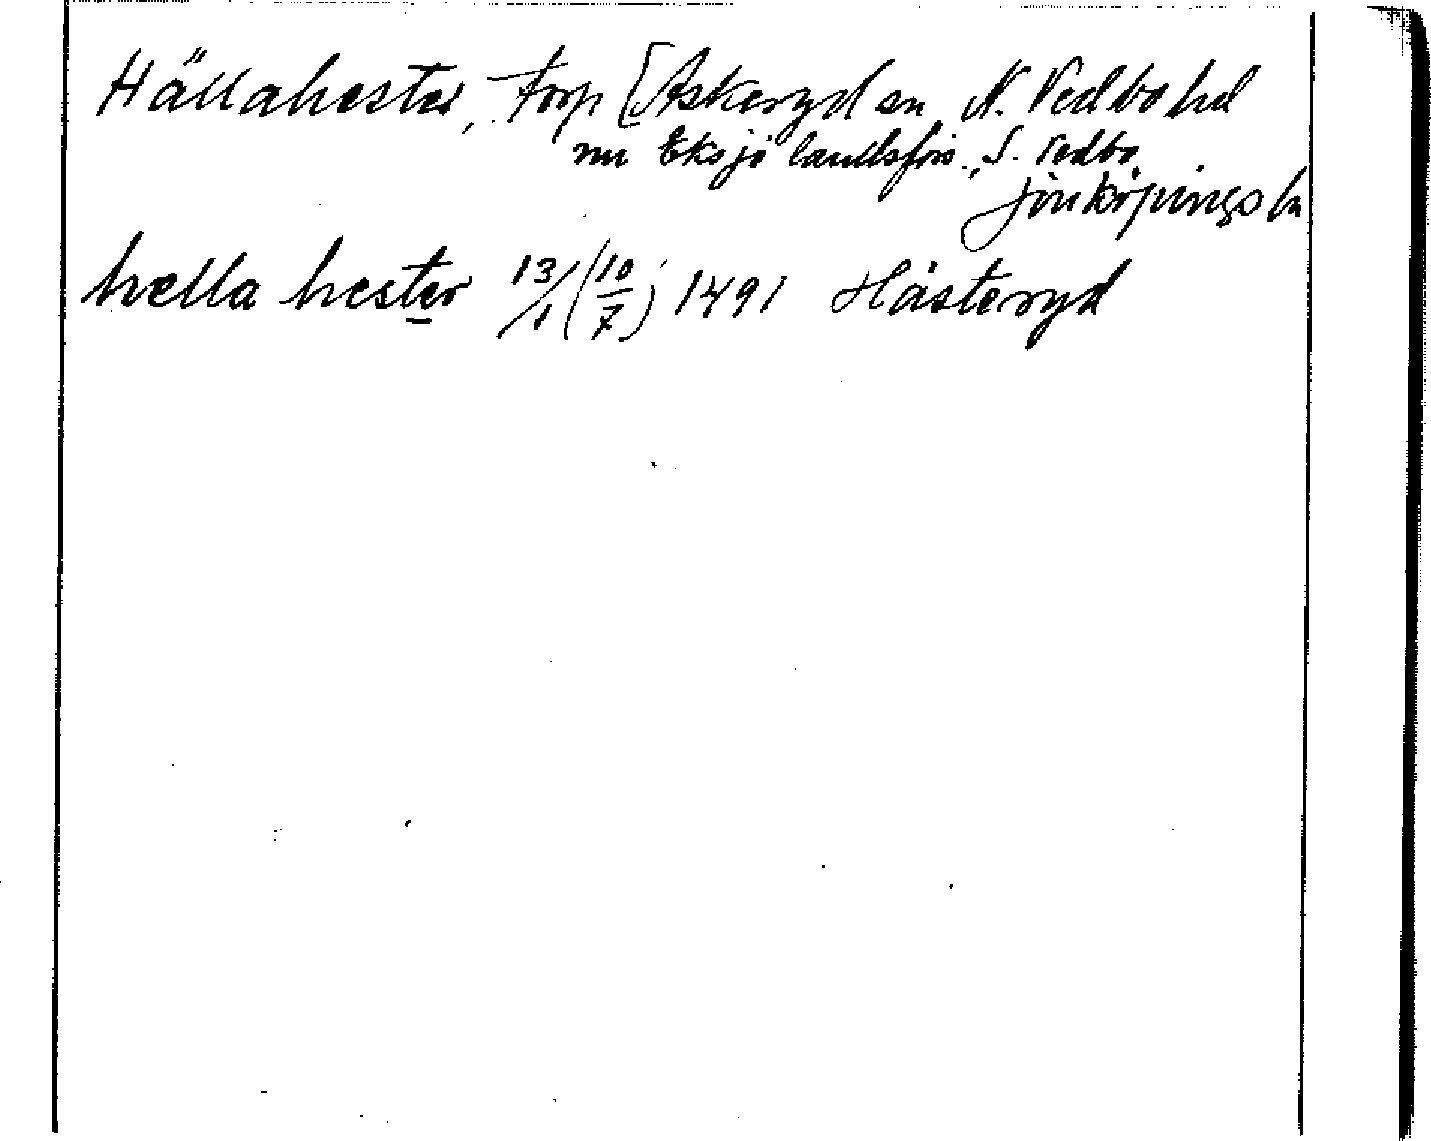 Hällahester, torp [Askeryd sn, N. Vedbo hd
nu Eksjö landsförs., S. Vedbo
Jönköpings ln
hella hester 13/1 (10/7) 1491 Hästeryd